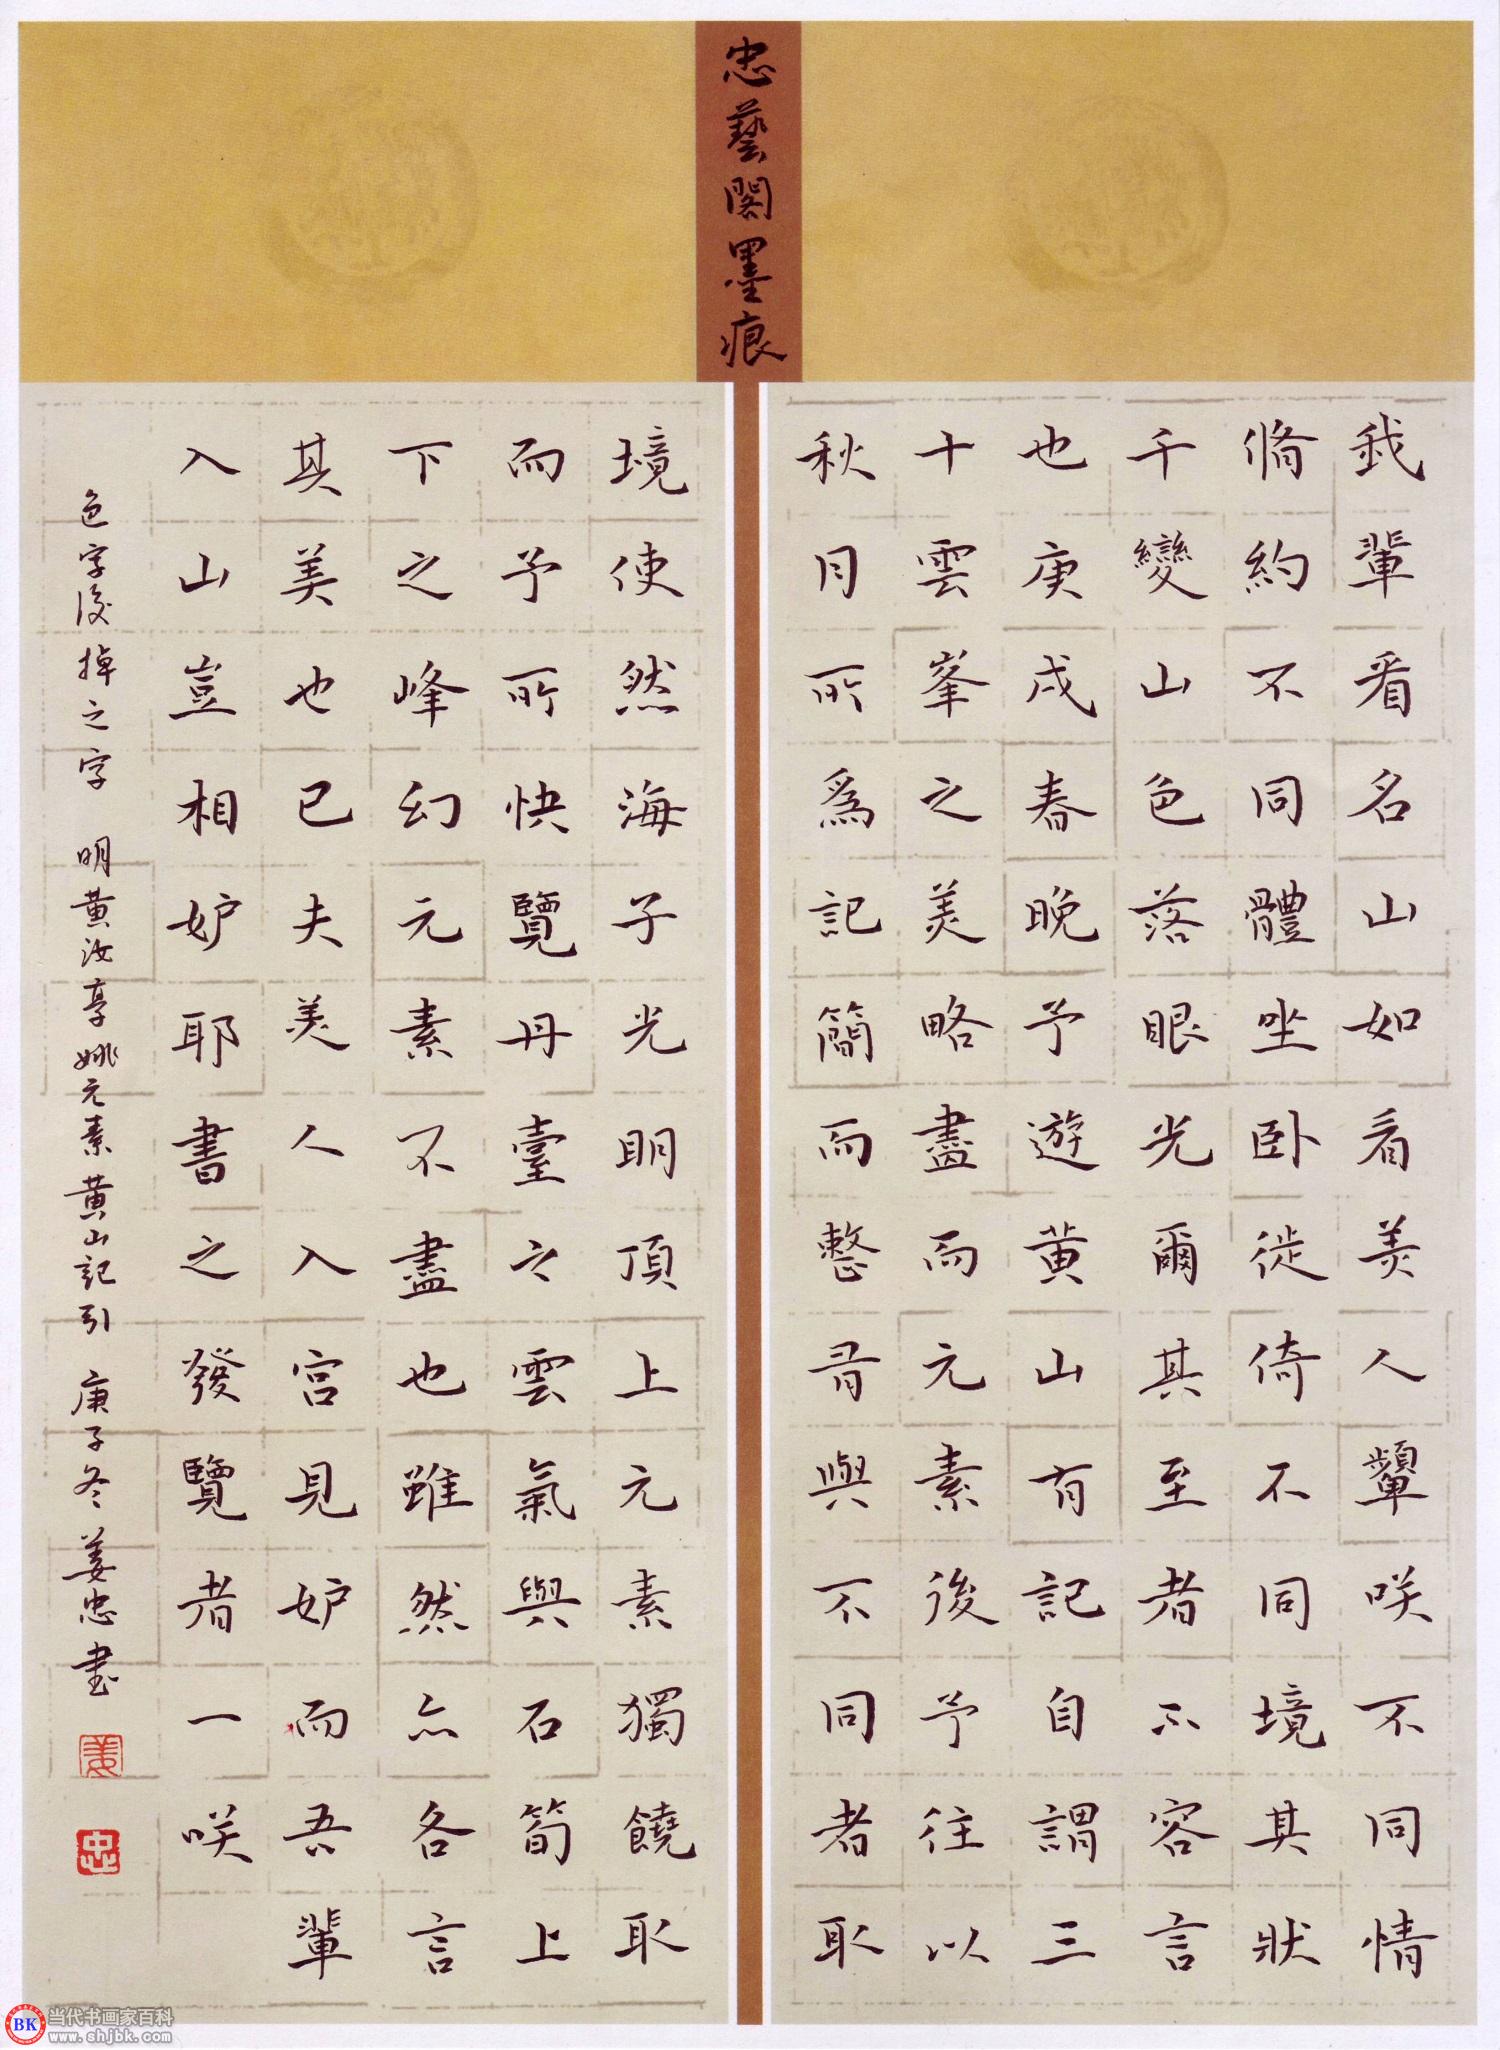 忠藝閣墨痕
我輩看名山如看美人顰咲不同情
脩約不同體坐卧徙倚不同境其狀
千變山色落眼光爾其至者不容言
也庚戌春晚予遊黄山有記自謂三
十雲峯之美略盡而元素後予往以
秋月所爲記簡而整者與不同者取
境使然海子光明頂上元素獨饒取
而予所快覽丹臺之雲氣與石筍上
下之峰幻元素不盡也雖然亦各言
其美也已夫美人入宫見妒而吾輩
入山豈相妒耶書之發覽者一咲
色字後掉之字 明黄汝亨姚元素黄山記引 庚子冬姜忠書
姜
忠
BK 当代书画家百科
www.shjbk.com